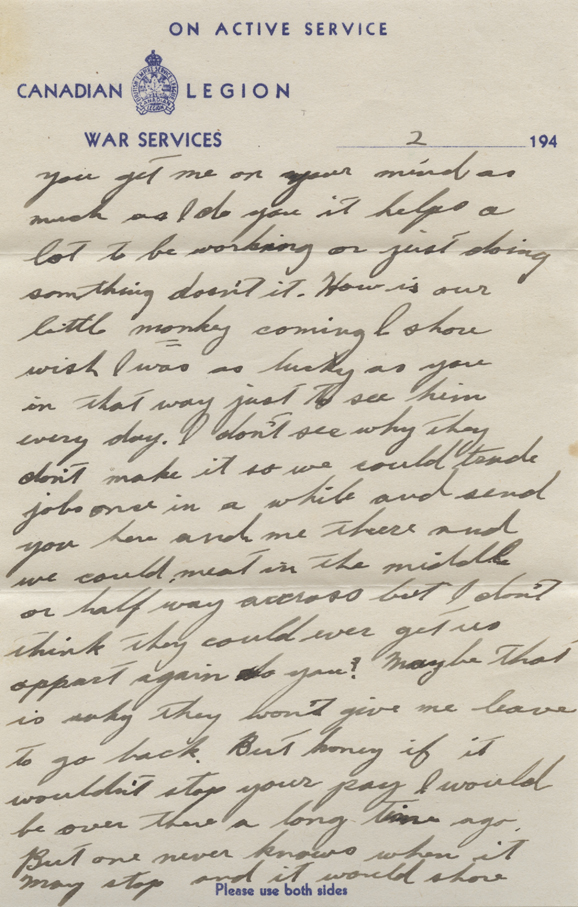 ON ACTIVE SERVICE
CANADIAN LEGION
WAR SERVICES 2 194
you get me on your mind as
much as I do you it helps a
lot to be working or just doing
somthing dosn't it. How is our
little monkey coming I shore
wish I was as lucky as you
in that way just to see him
every day. I don't see why they
don't make it so we could trade
jobs onse in a while and send
you here and me there and
we could meat in the middle
or half way accross but I don't
think they could ever get us
appart again do you? Maybe that
is why they won't give me leave
to go back. But honey if it
wouldn't stop your pay I would
be over there a long time ago.
But one never knows when it
may stop and it would shore
Please use both sides